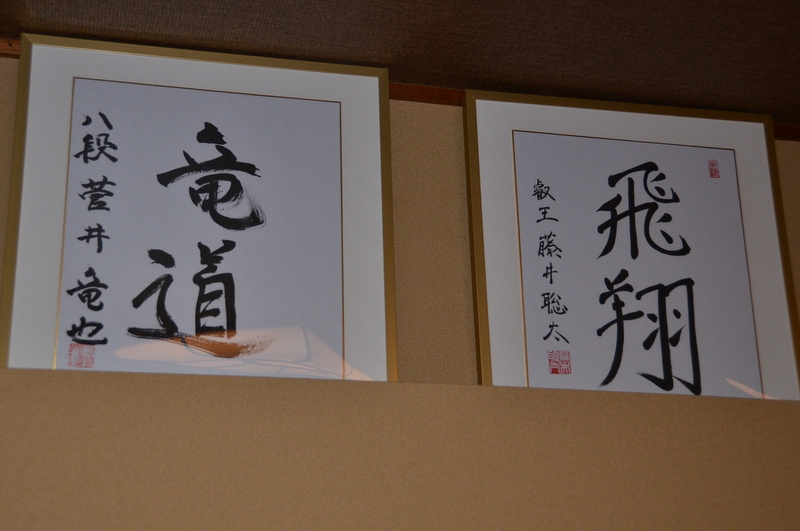 竜道
八段 菅井竜也
飛翔
叡王 藤井聡太